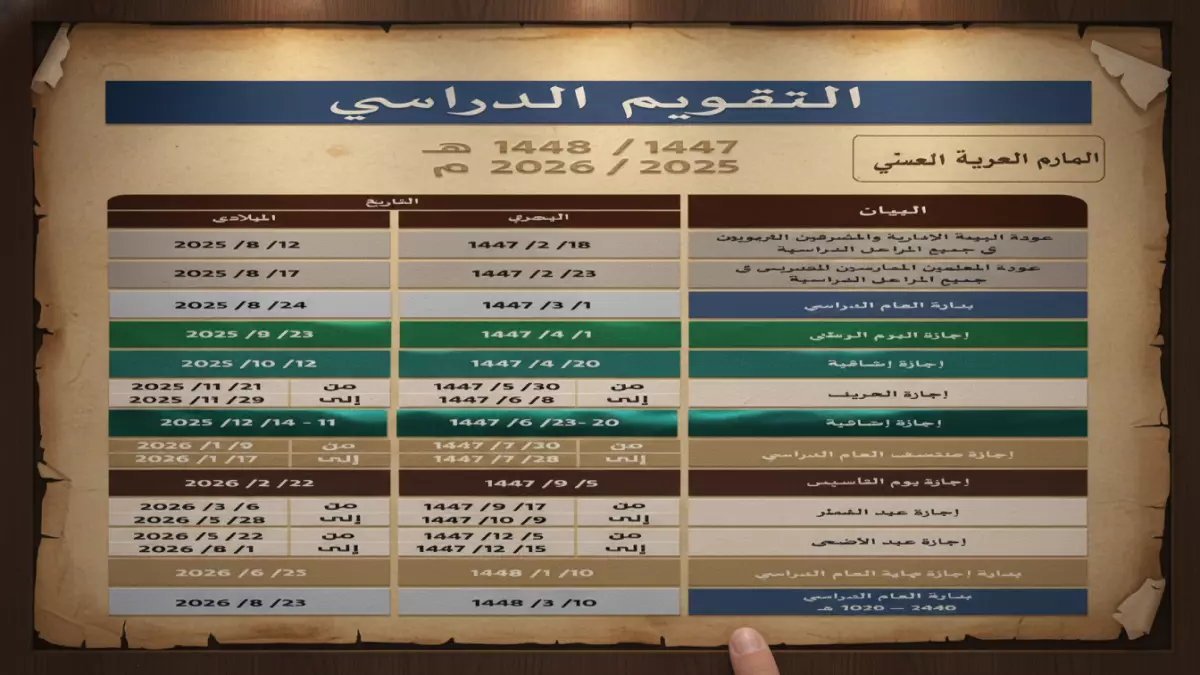 التقويم الدراسي
1447 / 1448 هـ
2025 / 2026 م
المارم العربة العسني
البيان
التاريخ
البحري
الميلادى
في جميع المراعل الدراسية
1447 /2 /18
2025 /8 /12
جميع المراعل الدراسية
1447 /2 /23
2025 /8 /17
بدارة العام الدراسي
1447 /3 /1
2025 /8 /24
إجازة اليوم الوطني
1447 /4 /1
2025 /9 /23
إجازة إضافية
1447 /4 /20
2025 /10 /12
إجازة الحريف
من 1447 /5 /30
إلى 1447 /6 /8
من 2025 /11 /21
إلى 2025 /11 /29
إجازة إضافية
1447 /6 /23- 20
2025 /12 /14 - 11
إجازة منتسف العام الدراسي
من 1447 /7 /30
إلى 1447 /7 /28
من 2026 /1 /9
إلى 2026 /1 /17
إجازة يوم التاسيس
1447 /9 /5
2026 /2 /22
إجازة عيد الفطر
من 1447 /9 /17
إلى 1447 /10 /9
من 2026 /3 /6
إلى 2026 /5 /28
إجازة عيد الأضحى
من 1447 /12 /5
إلى 1447 /12 /15
من 2026 /5 /22
إلى 2026 /8 /1
بداية إجازة العام الدراسي
1448 /1 /10
2026 /6 /25
بدارة العام الدراسي
2440 — 1020 هـ
1448 /3 /10
2026 /8 /23